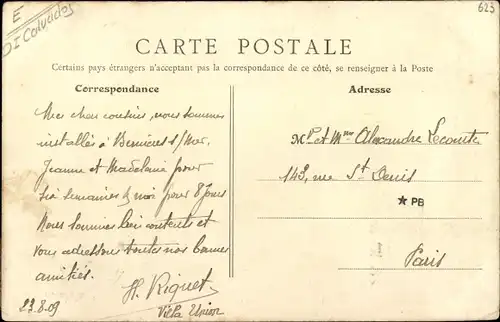 E
DI Calvados
623
CARTE POSTALE
Certains pays étrangers n'acceptant pas la correspondance de ce côté, se renseigner à la Poste
Correspondance
Mes chers cousins, nous sommes
installés à Bernières s/Mer,
Jeanne et Madeleine pour
six semaines & moi pour 8 jours
Nous sommes bien contents et
vous adressons toutes nos bonnes
amitiés.
H. Riquet
Villa Union
23.8.09
Adresse
Mr et Mme Alexandre Lecomte
143, rue St Denis
* PB
Paris